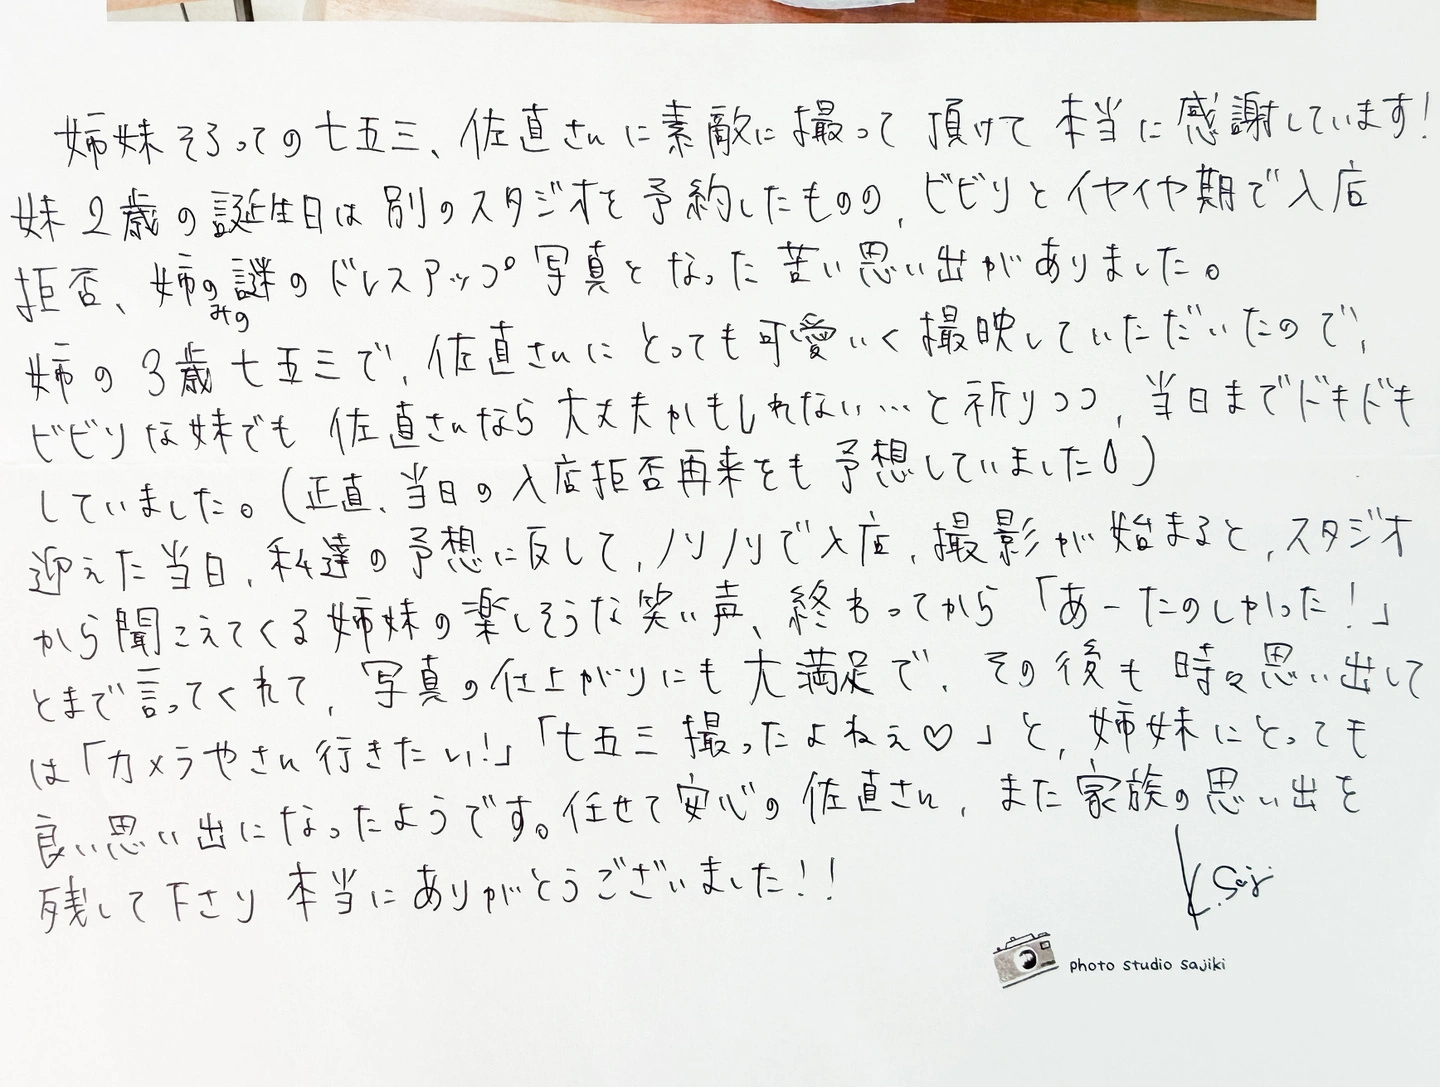 姉妹そろっての七五三、佐直さんに素敵に撮って頂けて本当に感謝しています!
妹2歳の誕生日は別のスタジオを予約したものの、ビビリとイヤイヤ期で入店
拒否、姉の謎のドレスアップ写真となった苦い思い出がありました。
みの
姉の3歳七五三で、佐直さんにとっても可愛いく撮映していただいたので、
ビビリな妹でも佐直さんなら大丈夫かもしれない…と祈りつつ、当日までドキドキ
していました。(正直、当日の入店拒否再来をも予想していました)
迎えた当日、私達の予想に反して、ノリノリで入店、撮影が始まると、スタジオ
から聞こえてくる姉妹の楽しそうな笑い声、終わってから「あーたのしかった!」
とまで言ってくれて、写真の仕上がりにも大満足で、その後も時々思い出して
は「カメラやさん行きたい!」「七五三撮ったよねぇ♡」と、姉妹にとっても
良い思い出になったようです。任せて安心の佐直さん、また家族の思い出を
残して下さり本当にありがとうございました!!
photo studio sajiki